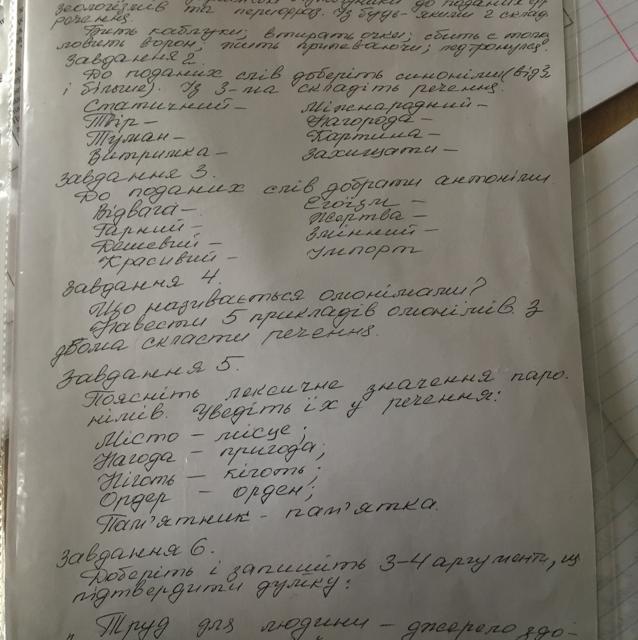 зеологізмів та перифраз. Із будь-якими 2 склад
речення.
Бить каблуки; втирать очки; сбить с толо
ловить ворон; жить припеваючи;
Завдання 2.
До поданих слів доберіть синоніми (від 3
і більше). Із 3-ма складіть речення.
Статичний – Міжнародний –
Твір – Нагорода –
Туман – Картина –
Витримка – Захищати –
Завдання 3.
До поданих слів добрати антоніми
Відвага – Егоїзм –
Гарний – Жертва –
Дешевий – Змінний –
Красивий – Імпорт
Завдання 4.
Що називається омонімами?
Навести 5 прикладів омонімів. З
двома скласти речення.
Завдання 5.
Поясніть лексичне значення паро-
німів. Уведіть їх у речення:
Місто – місце;
Нагода – пригода;
Ніготь – кіготь;
Ордер – орден;
Пам'ятник – пам'ятка.
Завдання 6.
Доберіть і запишіть 3-4 аргументи, щ
підтвердити думку:
„ Труд для людини – джерело здо-